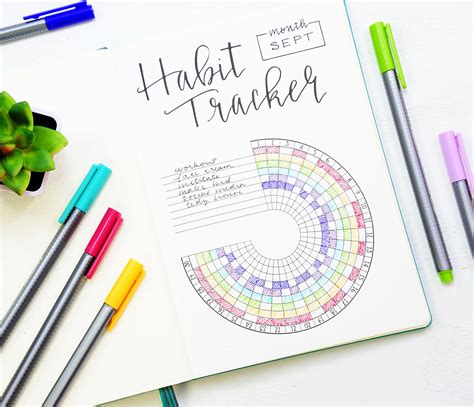 month
SEPT
Habit
Tracker
workout
face cream
meditate
make bed
social media
tidy house